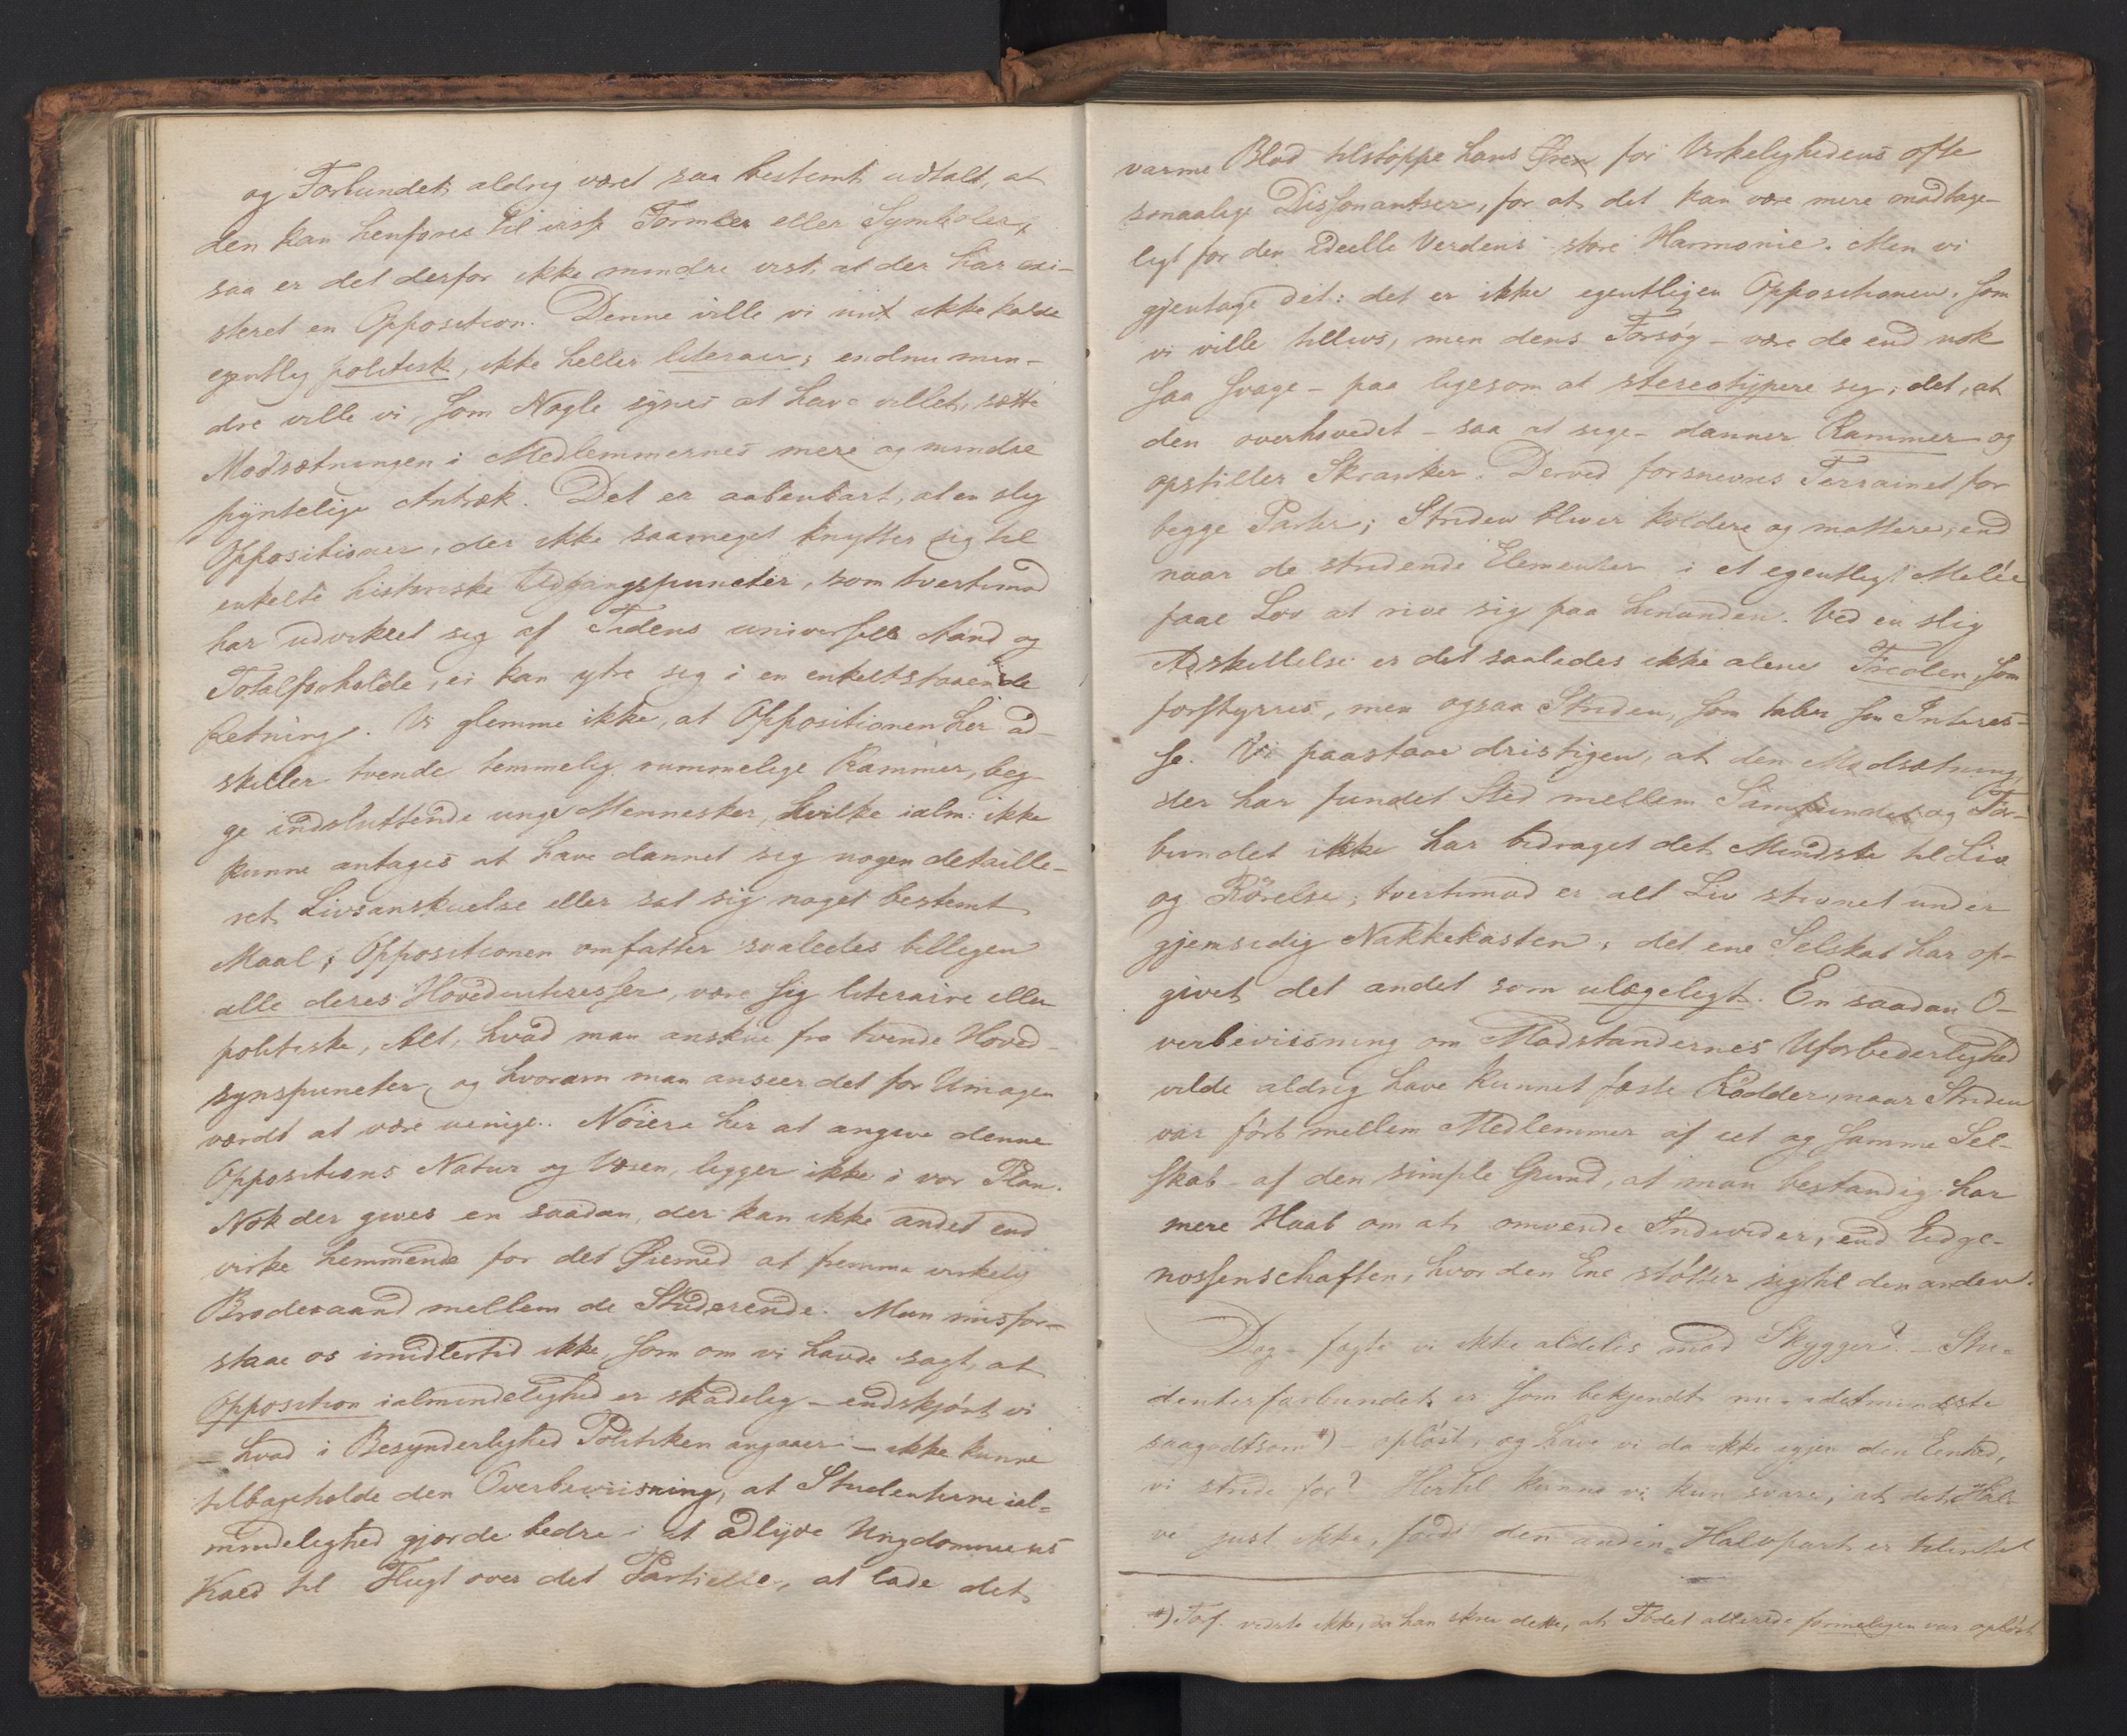 og Forbundet aldrig været saa bestemt udtalt, at
den kan henføres til visse Formler eller Symboler,
saa er det derfor ikke mindre vist, at der har exi-
steret en Opposition. Denne ville vi nu ikke kalde
egentlig politisk, ikke heller literair; endnu min-
dre ville vi som Nogle synes at have villet, sætte
Modsætningen i Medlemmernes mere og mindre
pyntelige Antræk. Det er aabenbart, at en slig
Opposition, der ikke saameget knytter sig til
enkelte historiske Udgangspuncter, som tvertimod
har udviklet sig af Tidens universelle Aand og
Totalforholde, ei kan yttre sig i en enkeltstaaende
Retning. Vi glemme ikke, at Oppositionen her ad-
skiller tvende temmelig rummelige Rammer, beg-
ge indsluttende unge Mennesker, hvilke ialm: ikke
kunne antages at have dannet sig nogen detaille-
ret Livsanskuelse eller sat sig noget bestemt
Maal; Oppositionen omfatter saaledes billigen
alle deres Hovedinteresser, være sig literaire eller
politiske, Alt, hvad man anskue fra tvende Hoved-
synspuncter og hvorom man anseer det for Umagen
værdt at være uenige. Nöiere her at angive denne
Oppositions Natur og Væsen, ligger ikke i vor Plan.
Nok der gives en saadan, der kan ikke andet end
virke hemmende for det Øiemed at fremme virkelig
Broderaand mellem de Studerende. Man misfor-
staae os imidlertid ikke, som om vi havde sagt, at
Opposition ialmindelighed er skadelig – endskjönt vi
– hvad i Besynderlighed Politiken angaaer – ikke kunne
tilbageholde den Overbeviisning, at Studenterne ial-
mindelighed gjorde bedre i at adlyde Ungdommens
Kald til Flugt over det Partielle, at lade det
varme Blod tilstoppe hans Øren for Virkelighedens ofte
smaalige Dissonantser, for at det kan være mere modtage-
ligt for den ideelle Verdens store Harmonie. Men vi
gjentage det: det er ikke egentligen Oppositionen, som
vi ville tillivs, men dens Forsøg – være de end nok
saa svage – paa ligesom at stereotypere sig; det, at
den overhovedet – saa at sige – danner Rammer og
opstiller Skranker. Derved forsnevres Terrainet for
begge Parter; Striden bliver koldere og mattere, end
naar de stridende Elementer i et egentligt Melée
faae Lov at rive sig paa hinanden. Ved en slig
Adskillelse er det saaledes ikke alene Freden, som
forstyrres, men ogsaa Striden, som taber sin Interes-
se. Vi paastaae dristigen, at den Modsætning,
der har fundet Sted mellem Samfundet og For-
bundet ikke har bidraget det Mindste til Liv
og Rörelse; tvertimod er alt Liv stivnet under
gjensidig Nakkekasten; det ene Selskab har op-
givet det andet som ulægeligt. En saadan O-
verbeviisning om Modstandernes Uforbederlighed
vilde aldrig have kunnet fæste Rödder, naar Striden
var fört mellem Medlemmer af eet og samme Sel-
skab – af den simple Grund, at man bestandig har
mere Haab om at omvende Individer, end Eidge-
nossenschaften, hvor den Ene stötter sig til den anden.
Dog – fegte vi ikke aldeles mod Skygger? – Stu-
denterforbundet er som bekjendt nu – idetmindste
saagodtsom *) – oplöst, og have vi da ikke igjen den Eenhed,
vi stride for? Hertil kunne vi kun svare, at det Hal-
ve just ikke, fordi den anden Halvpart er tilintet
*) Forf. vidste ikke, da han skrev dette, at Fbdet allerede formeligen var oplöst